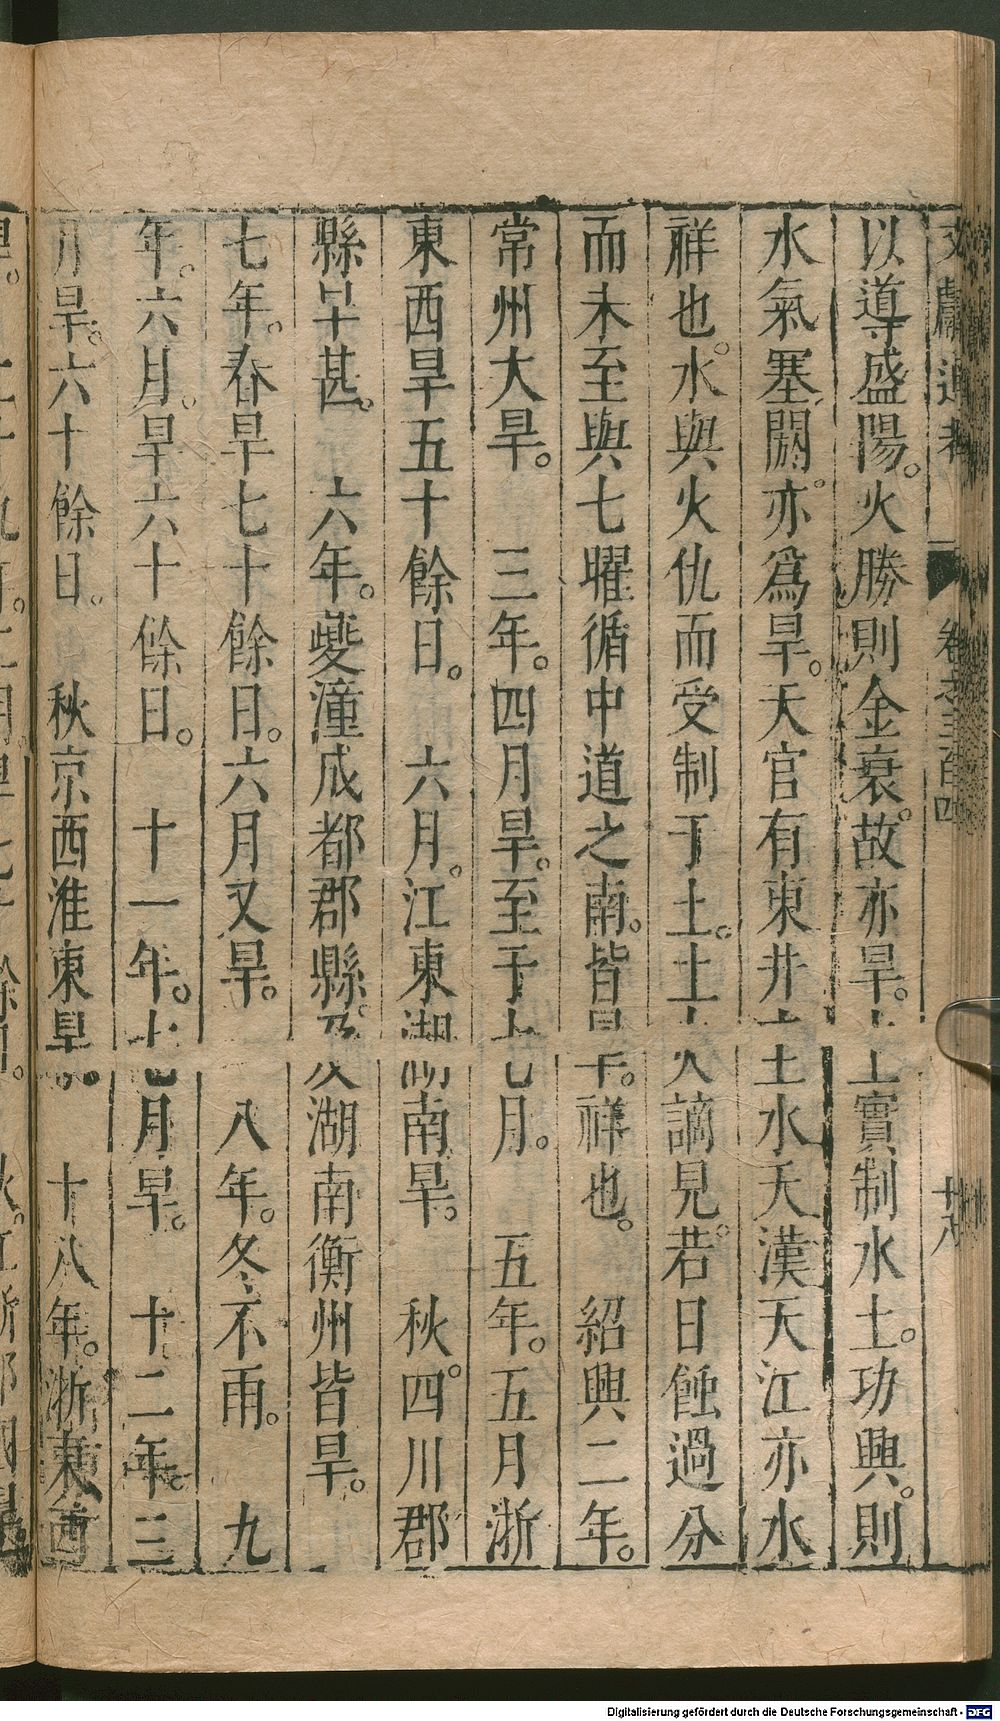 文獻通考 卷之三百四 十八
以導盛陽。火勝則金衰。故亦旱。土實制水土。功興。則
水氣塞閼。亦爲旱。天官有東井主水天漢天江亦水
祥也。水與火仇而受制于土。土火謫見。若日蝕過分
而未至與七曜循中道之南。皆旱祥也。 紹興二年。
常州大旱。 三年。四月旱。至于七月。 五年。五月浙
東西旱五十餘日。 六月。江東湖南旱。 秋。四川郡
縣旱甚。 六年。夔潼成都郡縣。及湖南衡州皆旱。
七年。春旱七十餘日。六月又旱。 八年。冬不雨。 九
年。六月。旱六十餘日。 十一年。七月旱。 十二年。三
月旱。六十餘日。 秋京西淮東旱。 十八年。浙東西
Digitalisierung gefördert durch die Deutsche Forschungsgemeinschaft - DFG